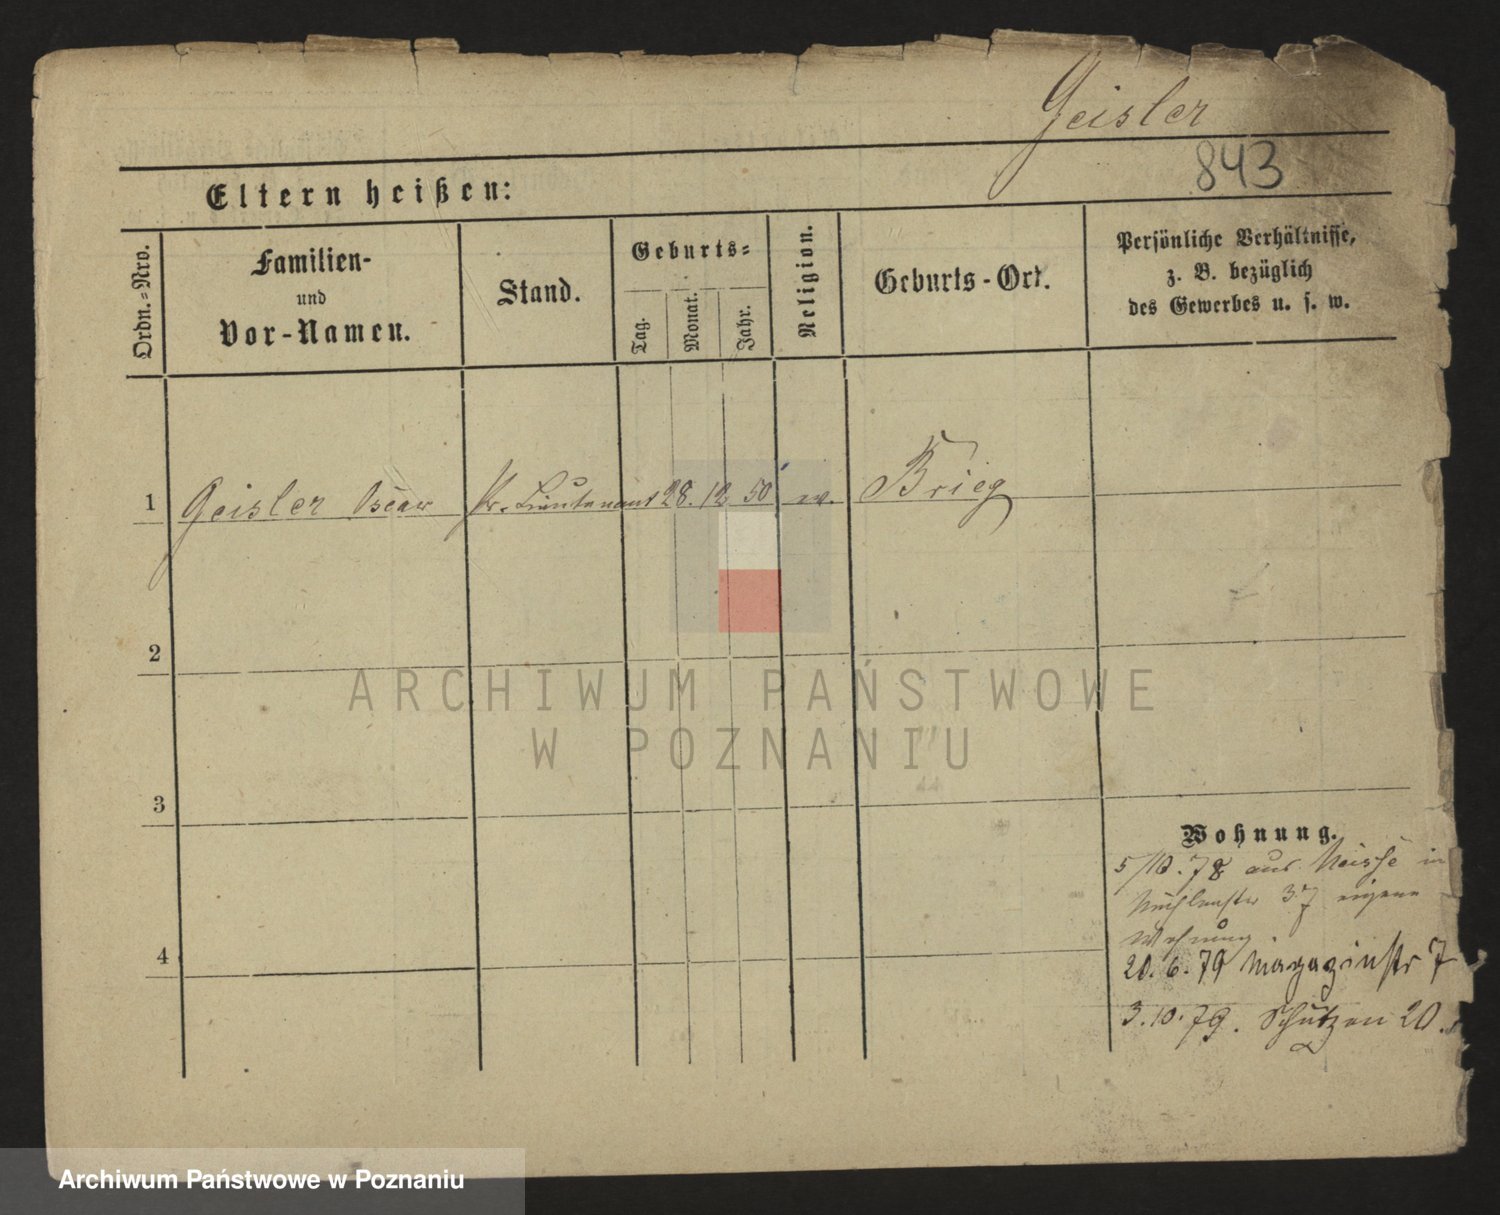 Geisler
843
Eltern heißen:
Ordn.=Nro.
Familien-
und
Vor-Namen.
Stand.
Geburts=
Tag.
Monat.
Jahr.
Religion.
Geburts-Ort.
Persönliche Verhältnisse,
z. B. bezüglich
des Gewerbes u. s. w.
1 Geisler Oscar Pr. Lieutenant 28. 12 50 ev. Brieg
2
3
4
Wohnung.
5/10.78 aus Neisse in
37 eigene
Wohnung.
20.6.79 Magazinstr 7
3.10.79. Schützen 20.
ARCHIWUM PAŃSTWOWE
W POZNANIU
Archiwum Państwowe w Poznaniu